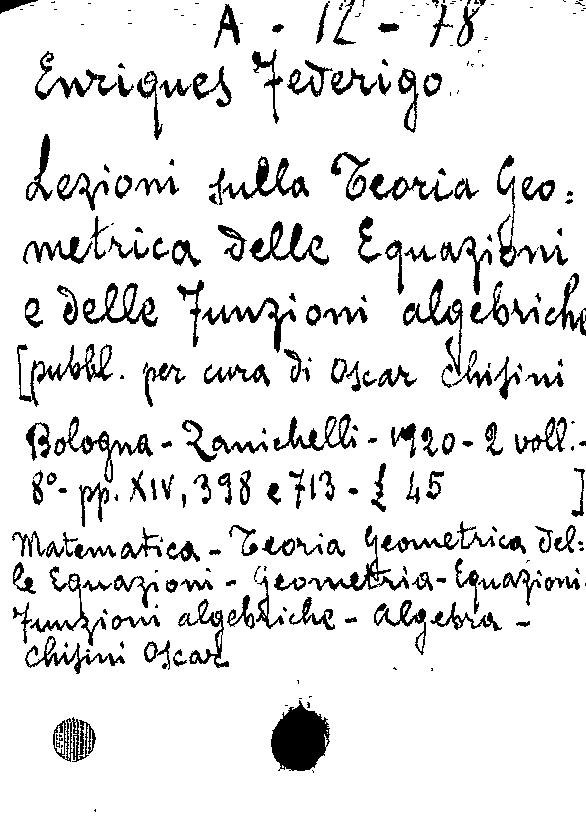 A - 12 - 78
Enriques Federigo
Lezioni sulla Teoria Geo=
metrica delle Equazioni
e delle Funzioni algebriche
[pubbl. per cura di Oscar Chisini
Bologna - Zanichelli - 1920 - 2 voll. -
8º - pp. XIV, 398 e 713 - £ 45 ]
Matematica - Teoria Geometrica del=
le Equazioni - Geometria - Equazioni.
Funzioni algebriche - Algebra -
Chisini Oscar